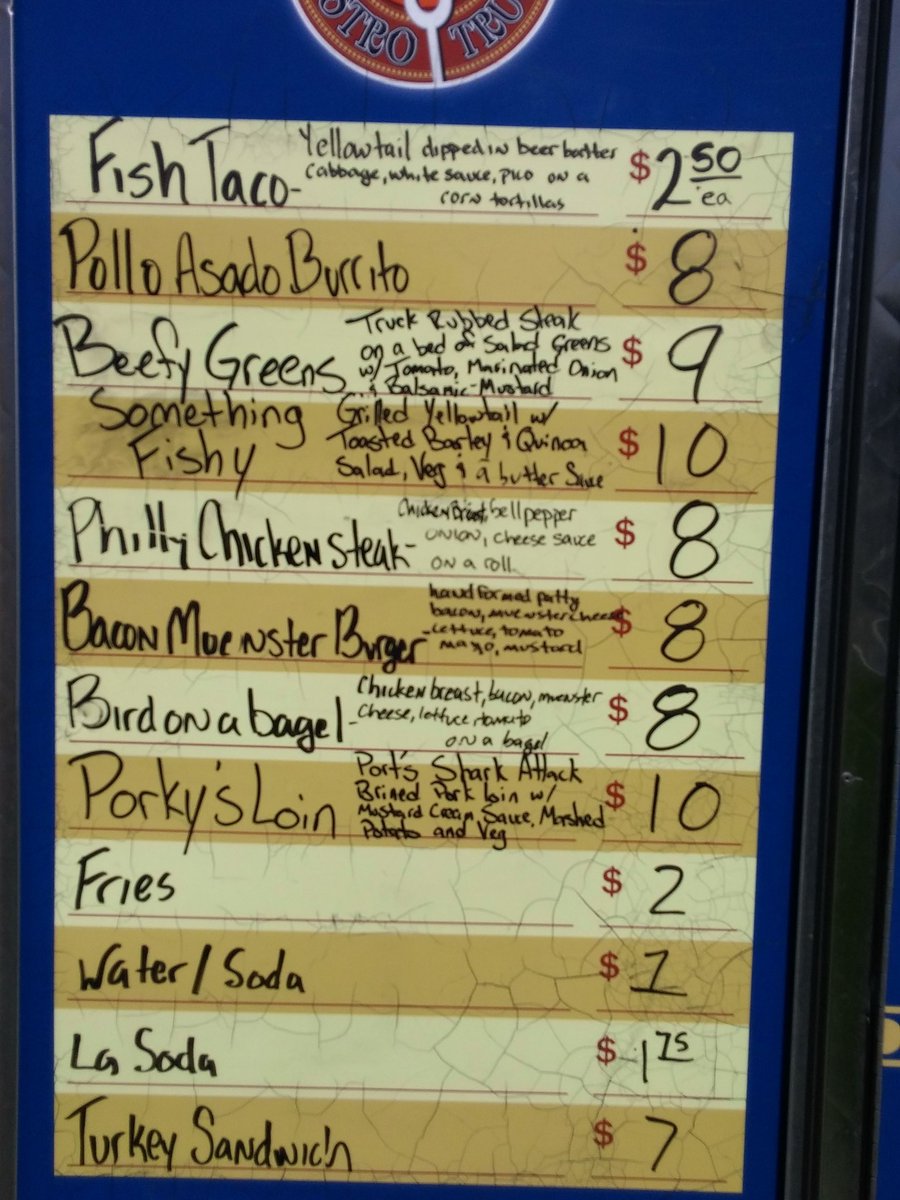 STRO TRU
Fish Taco- Yellowtail dipped in beer batter
cabbage, white sauce, pico on a
corn tortillas
$ 2 50 ea
Pollo Asado Burrito $ 8
Beefy Greens Truck Rubbed Steak
on a bed of Salad Greens
w/ Tomato, Marinated Onion
& Balsamic-Mustard
$ 9
Something
Fishy
Grilled Yellowtail w/
Toasted Barley & Quinoa
Salad, Veg & a butter Sauce
$ 10
Philly Chicken steak- Chicken Breast, bell pepper
onion, cheese sauce
on a roll
$ 8
Bacon Muenster Burger- hand formed patty
bacon, muenster cheese
lettuce, tomato
mayo, mustard
$ 8
Bird on a bagel- Chicken breast, bacon, muenster
cheese, lettuce, tomato
on a bagel
$ 8
Porky's Loin Port's Shark Attack
Brined Pork loin w/
Mustard Cream Sauce, Mashed
Potato and Veg
$ 10
Fries $ 2
Water / Soda $ 1
La Soda $ 1 75
Turkey Sandwich $ 7